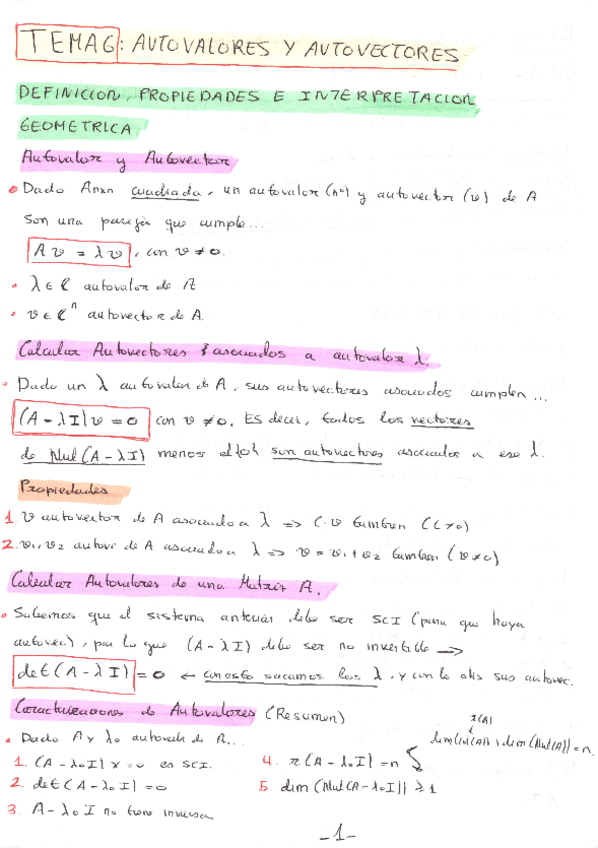 TEMA 6: AUTOVALORES Y AUTOVECTORES
DEFINICION, PROPIEDADES E INTERPRETACION
GEOMETRICA
Autovalor y Autovector
Dado Anxn cuadrada, un autovalor (nº) y autovector (v) de A
son una pareja que cumple...
Av = λv, con v ≠ 0.
λ ∈ ℂ autovalor de A
v ∈ ℂⁿ autovector de A.
Calcular Autovectores asociados a autovalor λ.
Dado un λ autovalor de A, sus autovectores asociados cumplen...
(A - λI)v = 0 con v ≠ 0. ES decir, todos los vectores
de Nul(A - λI) menos el {0} son autovectores asociados a ese λ.
Propiedades
1. v autovector de A asociado a λ => C·v tambien (C ≠ 0)
2. v1, v2 autove de A asociado a λ => v = v1 + v2 tambien (v ≠ 0)
Calcular Autovalores de una Matriz A.
Sabemos que el sistema anterior debe ser SCI (para que haya
autovec), por lo que (A - λI) debe ser no invertible →
det(A - λI) = 0 ← con esto sacamos los λ, y con lo otro sus autovec.
Caracterizaciones de Autovalores (Resumen)
r(A)
dim(Col(A)) + dim(Nul(A)) = n.
Dado A y λ0 autovalor de A...
1. (A - λ0I)x = 0 es SCI.
2. det(A - λ0I) = 0
3. A - λ0I no tiene inversa
4. r(A - λ0I) = n
5. dim(Nul(A - λ0I)) ≥ 1
-1-